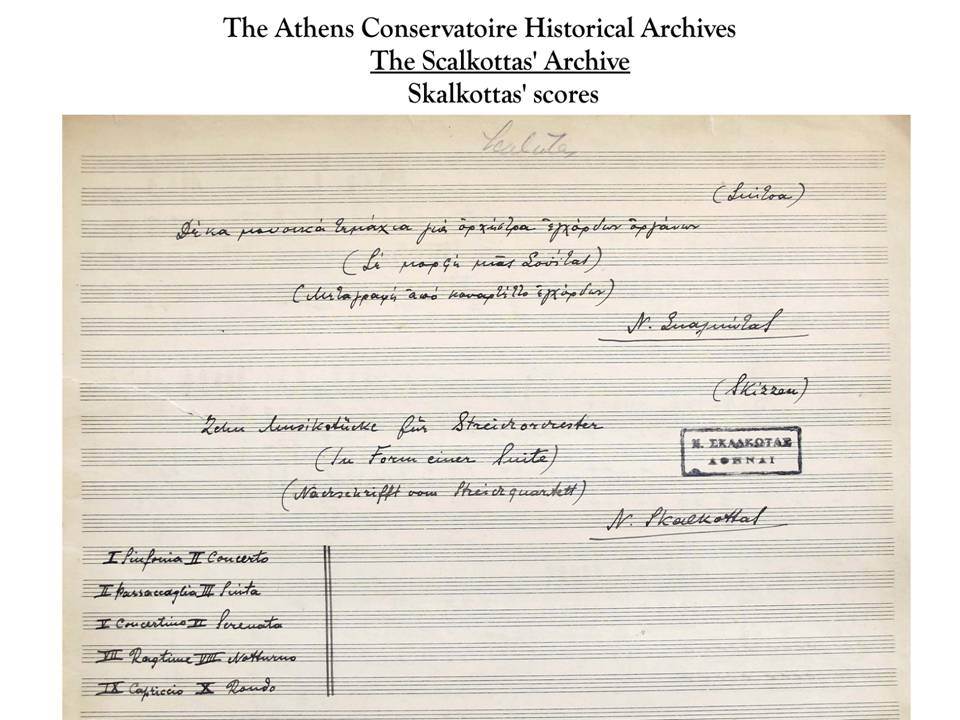 The Athens Conservatoire Historical Archives
The Scalkottas' Archive
Skalkottas' scores
(Σκίτσα)
Δέκα μουσικά τεμάχια γιά ὀρχήστρα ἐγχόρδων ὀργάνων
(Σέ μορφή μιᾶς Σουίτας)
(Μεταγραφή ἀπό κουαρτέττο ἐγχόρδων)
Ν. Σκαλκώτας
(Skizzen)
Zehn Musikstücke für Streichorchester
(In Form einer Suite)
(Nachschrifft vom Streichquartett)
Ν. ΣΚΑΛΚΩΤΑΣ
ΑΘΗΝΑΙ
N. Skalkottas
I Sinfonia II Concerto
II Passacaglia III Suita
V Concertino VI Serenata
VII Ragtime VIII Notturno
IX Capriccio X Rondo